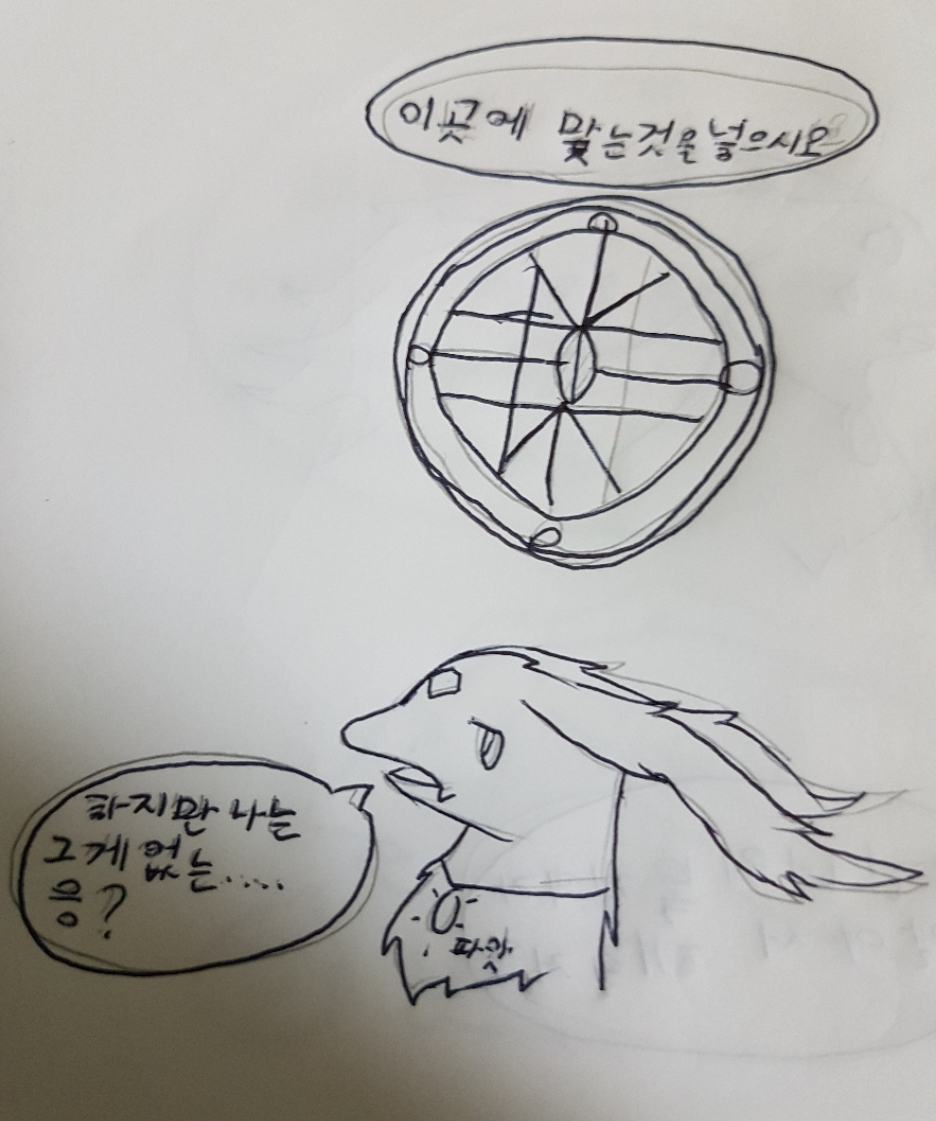 이곳에 맞는것을넣으시오
하지만 나는
그게 없는.....
응?
파앗